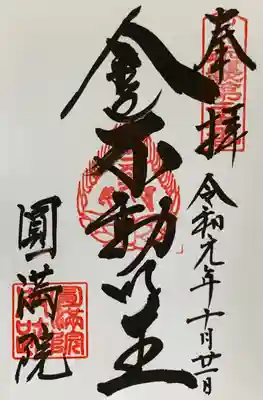 奉拝
令和元年十月廿一日
金不動明王
圓満院